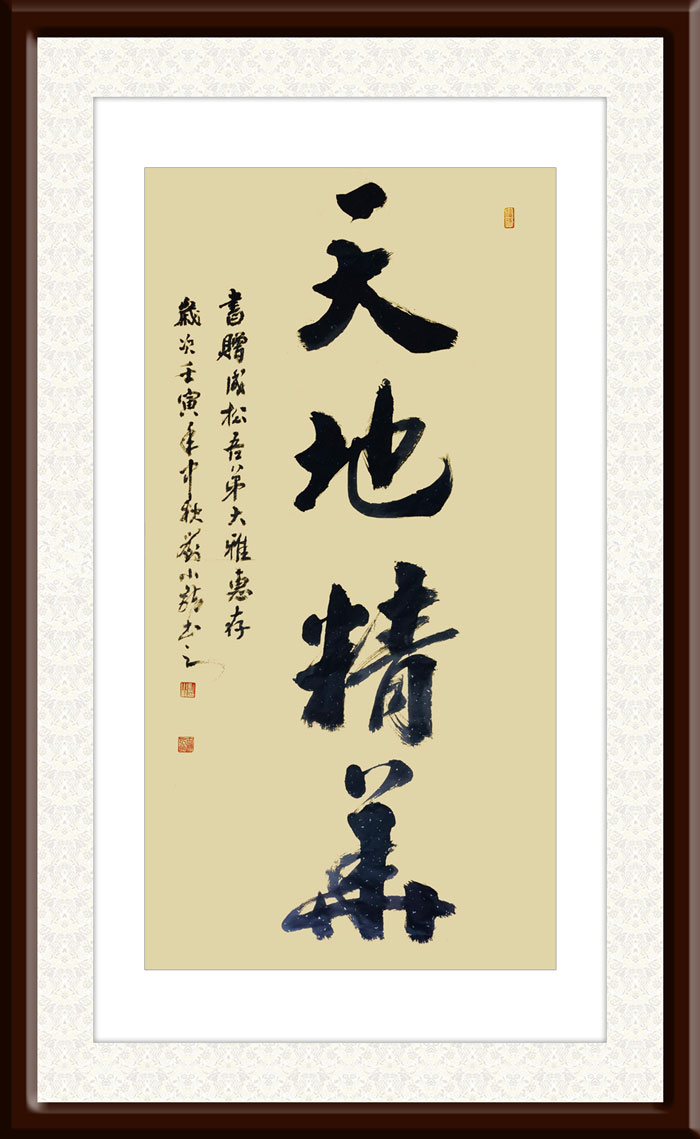 天地精華
書贈成松吾弟大雅惠存
歲次壬寅年中秋劉小龍書之